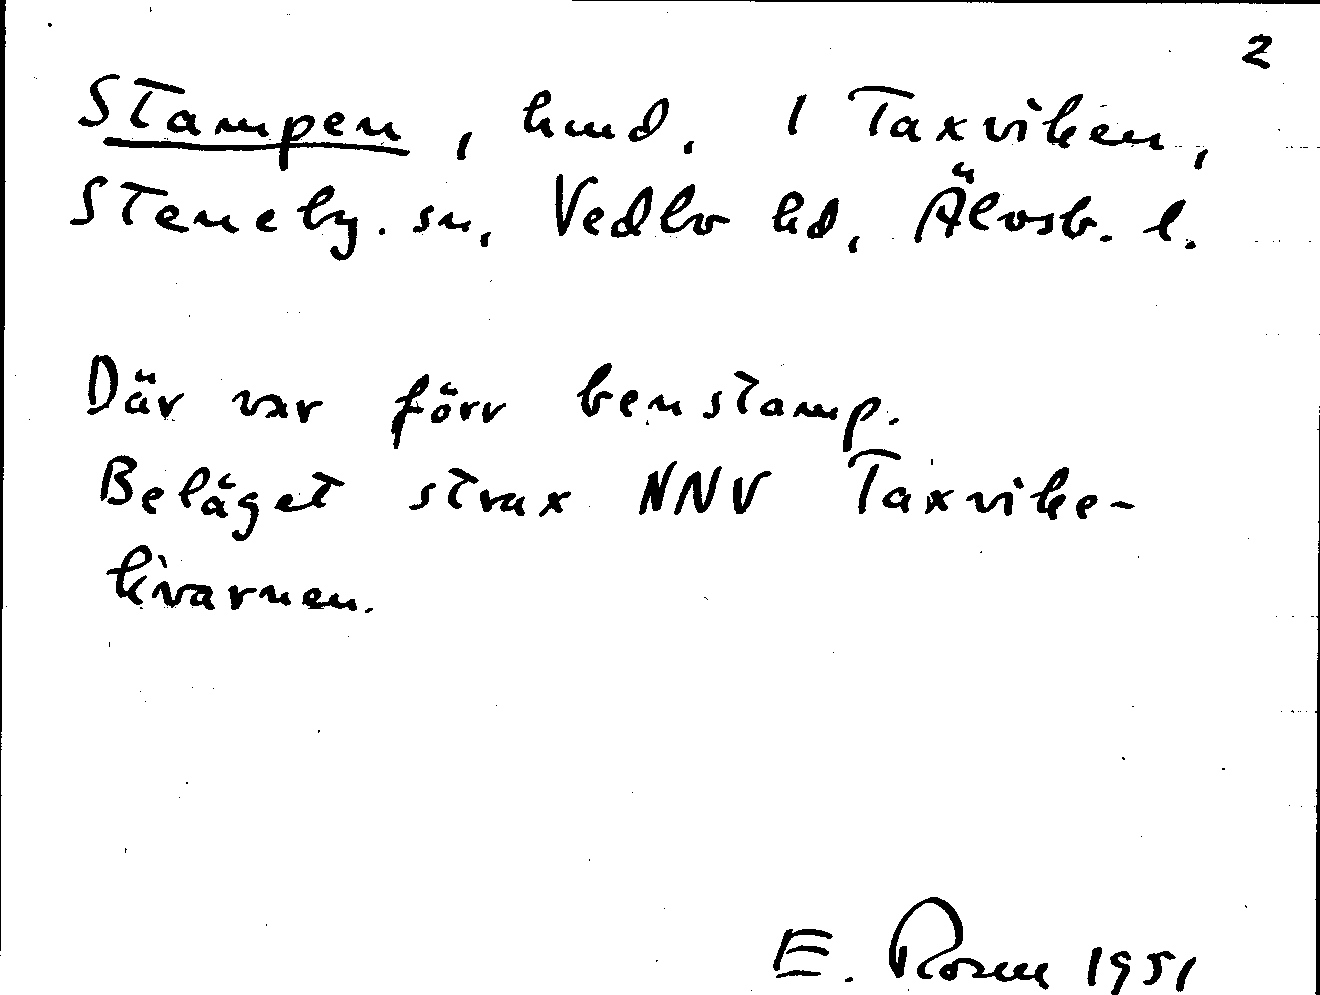 2
Stampen, hmd. 1 Taxviken,
Steneby. sn, Vedbo hd, Älvsb. l.
Där var förr benstamp.
Beläget strax NNV Taxvike-
kvarnen.
E. Rosen 1951